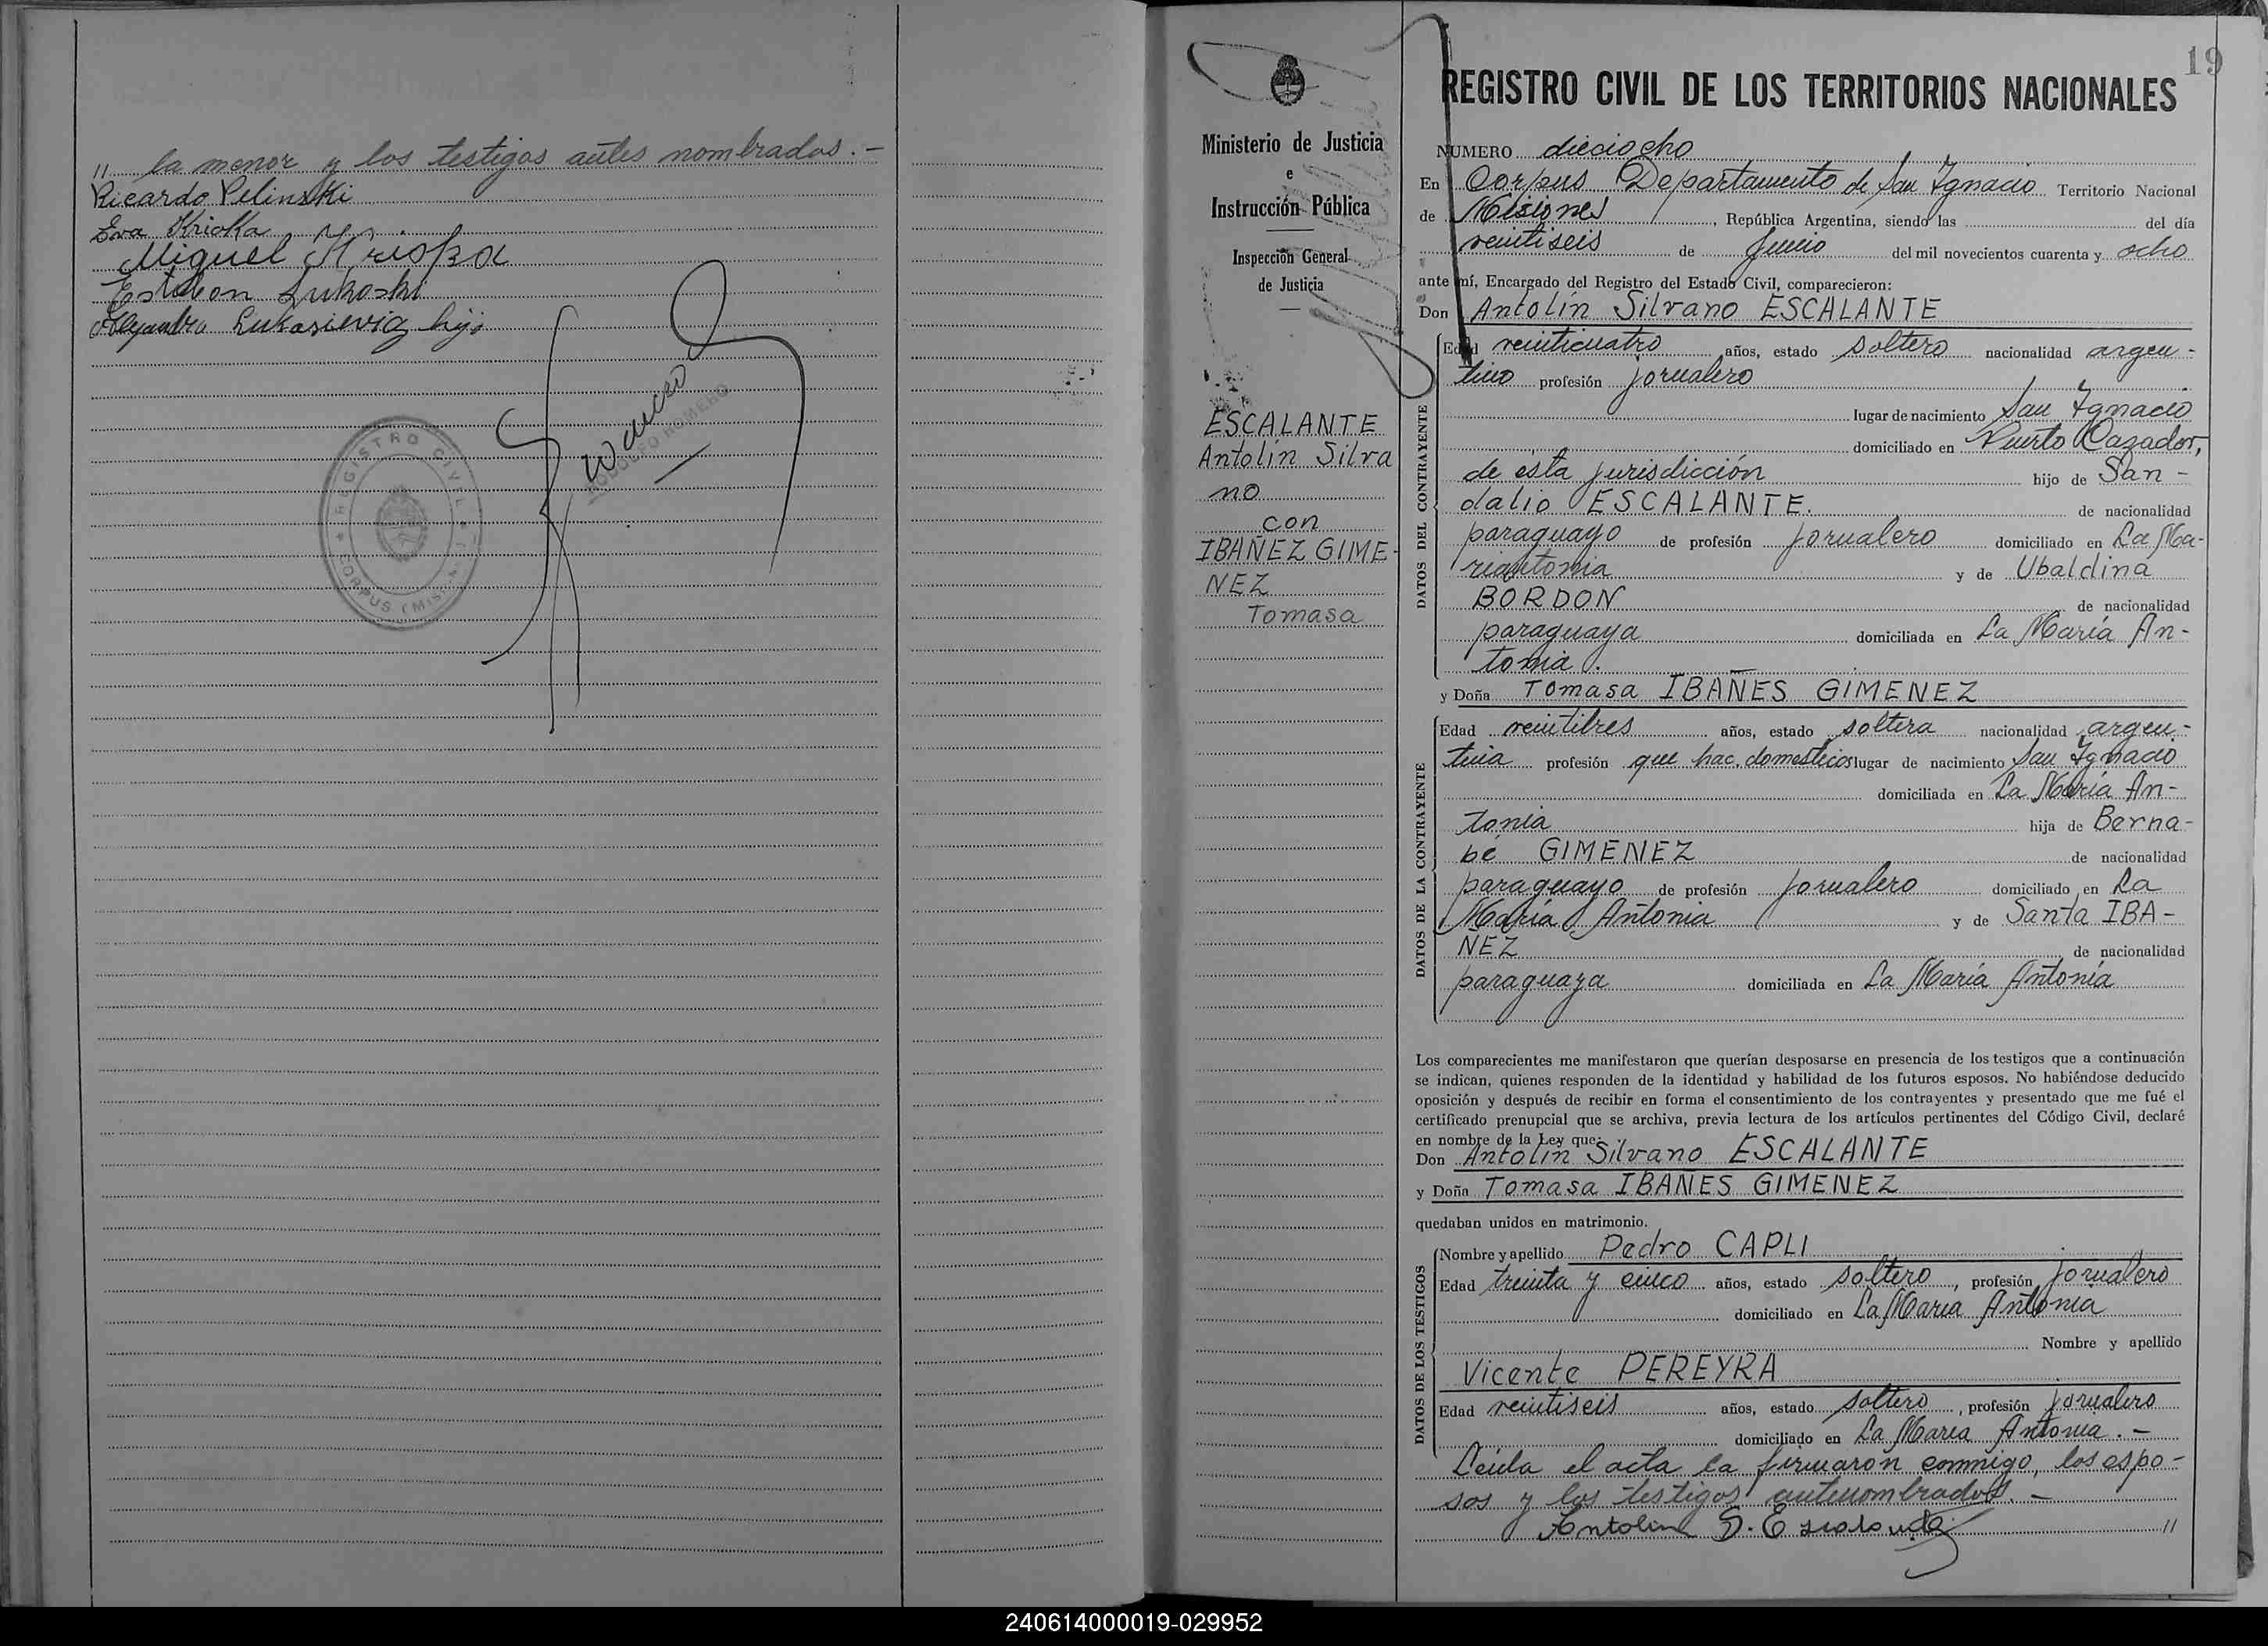 " la menor y los testigos antes nombrados.-
Ricardo Pelinski
Eva Krioka
Miguel Krioka
Esteban Lukoski
Alejandro Lukasievig hijo
REGISTRO CIVIL
CORPUS (MIS
RODOLFO ROMERO
19
Ministerio de Justicia
e
Instrucción Pública
Inspección General
de Justicia
ESCALANTE
Antolín Silva
no
con
IBAÑEZ GIME-
NEZ
Tomasa
REGISTRO CIVIL DE LOS TERRITORIOS NACIONALES
NUMERO dieciocho
En Corpus Departamento de San Ignacio Territorio Nacional
de Misiones, República Argentina, siendo las del día
veintiseis de Junio del mil novecientos cuarenta y ocho
ante mí, Encargado del Registro del Estado Civil, comparecieron:
Don Antolín Silvano ESCALANTE
DATOS DEL CONTRAYENTE
Edad veinticuatro años, estado soltero nacionalidad argen-
tino profesión jornalero
lugar de nacimiento San Ignacio
domiciliado en Puerto Cazador,
de esta jurisdicción hijo de San-
dalio ESCALANTE. de nacionalidad
paraguayo de profesión jornalero domiciliado en La Ma-
riantonia y de Ubaldina
BORDON de nacionalidad
paraguaya domiciliada en La María An-
tonia.
y Doña Tomasa IBAÑES GIMENEZ
DATOS DE LA CONTRAYENTE
Edad veintitres años, estado soltera nacionalidad argen-
tina profesión que hac. domesticos lugar de nacimiento San Ignacio
domiciliada en La María An-
tonia hija de Berna-
bé GIMENEZ de nacionalidad
paraguayo de profesión jornalero domiciliado en La
María Antonia y de Santa IBA-
ÑEZ de nacionalidad
paraguaya domiciliada en La María Antonia
Los comparecientes me manifestaron que querían desposarse en presencia de los testigos que a continuación
se indican, quienes responden de la identidad y habilidad de los futuros esposos. No habiéndose deducido
oposición y después de recibir en forma el consentimiento de los contrayentes y presentado que me fué el
certificado prenupcial que se archiva, previa lectura de los artículos pertinentes del Código Civil, declaré
en nombre de la Ley que:
Don Antolín Silvano ESCALANTE
y Doña Tomasa IBAÑES GIMENEZ
quedaban unidos en matrimonio.
DATOS DE LOS TESTIGOS
Nombre y apellido Pedro CAPLI
Edad treinta y cinco años, estado soltero, profesión jornalero
domiciliado en La María Antonia
Nombre y apellido
Vicente PEREYRA
Edad veintiseis años, estado soltero, profesión jornalero
domiciliado en La María Antonia.-
Leída el acta la firmaron conmigo, los espo-
sos y los testigos antenombrados.-
Antolin S. Escalante "
240614000019-029952